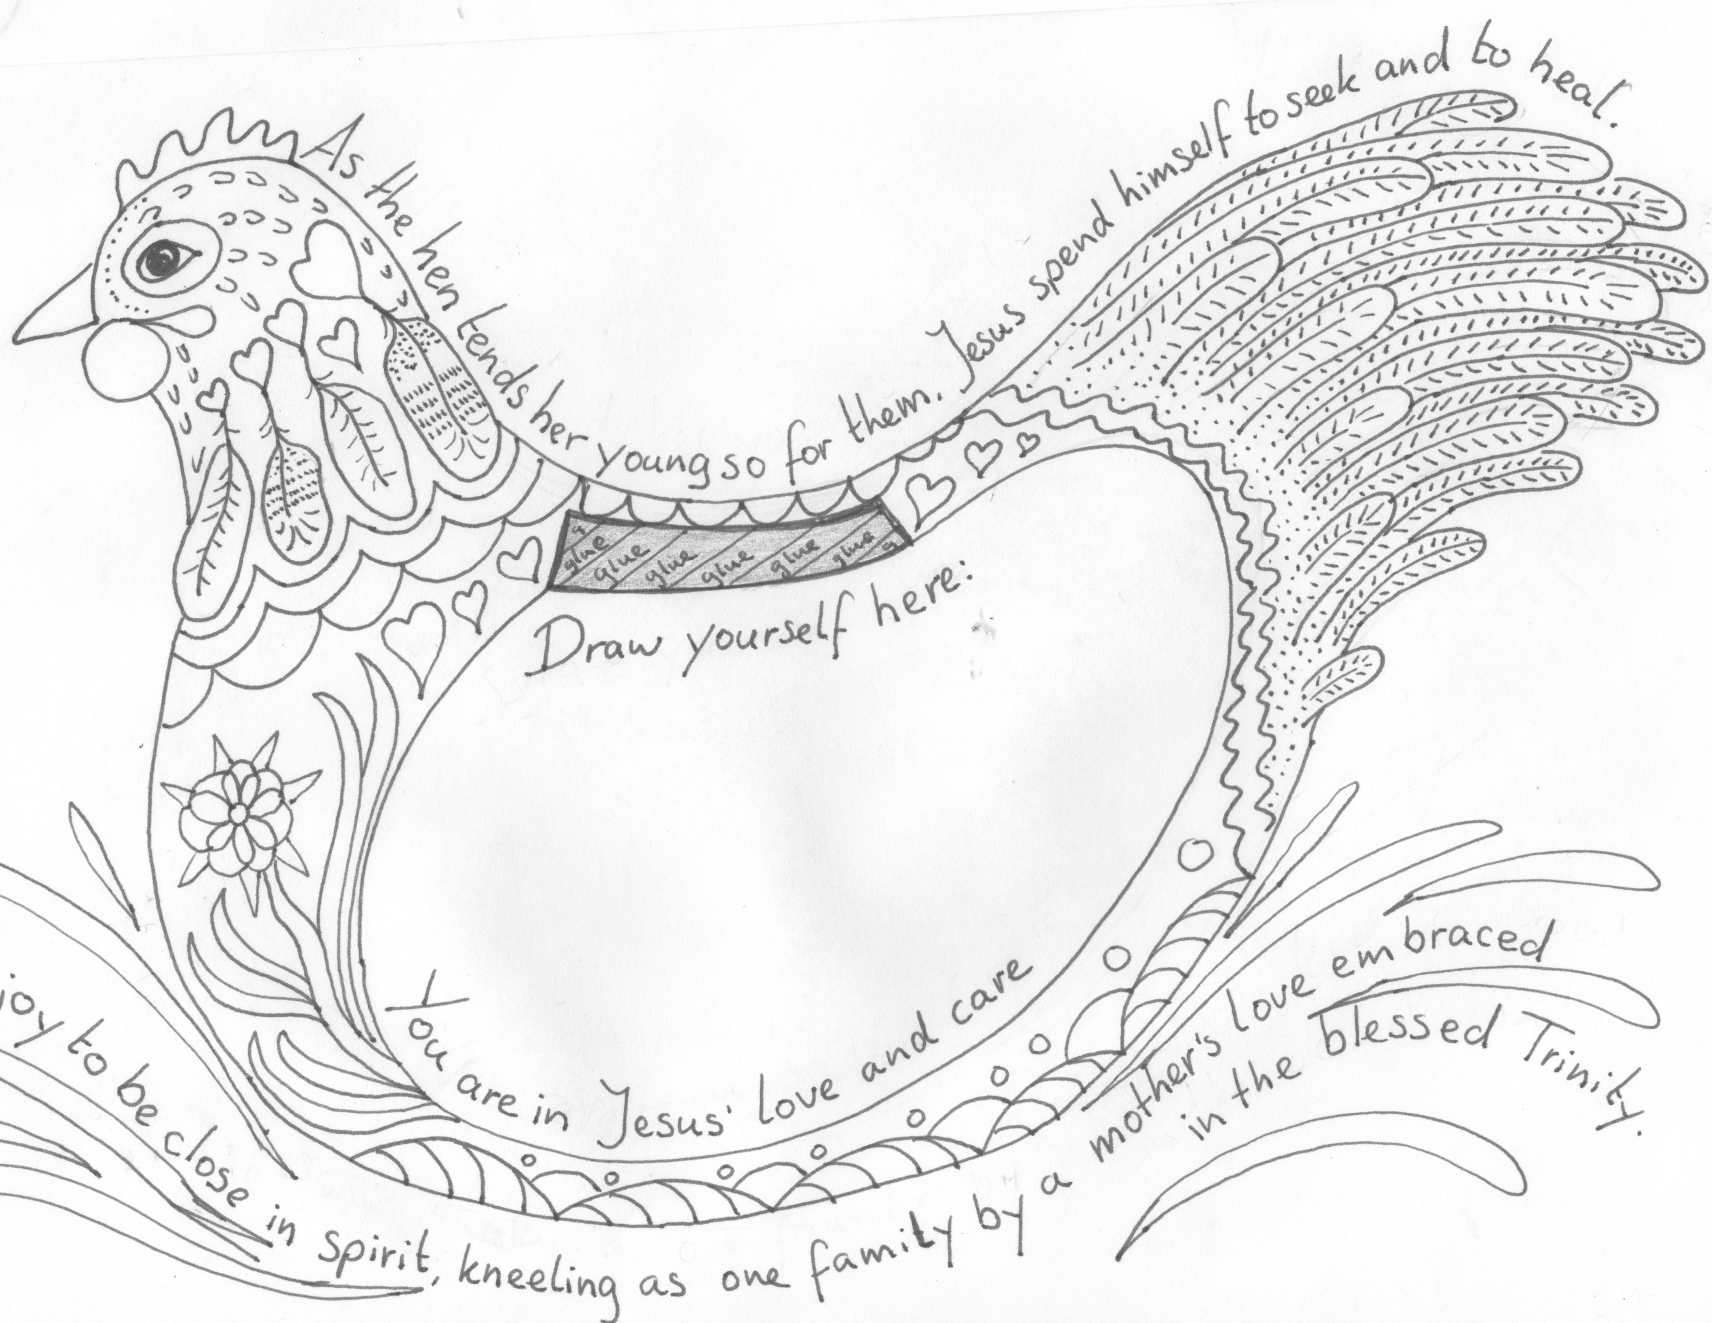 As the hen tends her young so for them. Jesus spend himself to seek and to heal.
glue glue glue glue glue glue
Draw yourself here:
You are in Jesus' love and care
joy to be close in spirit, kneeling as one family by a mother's love embraced
in the blessed Trinity.